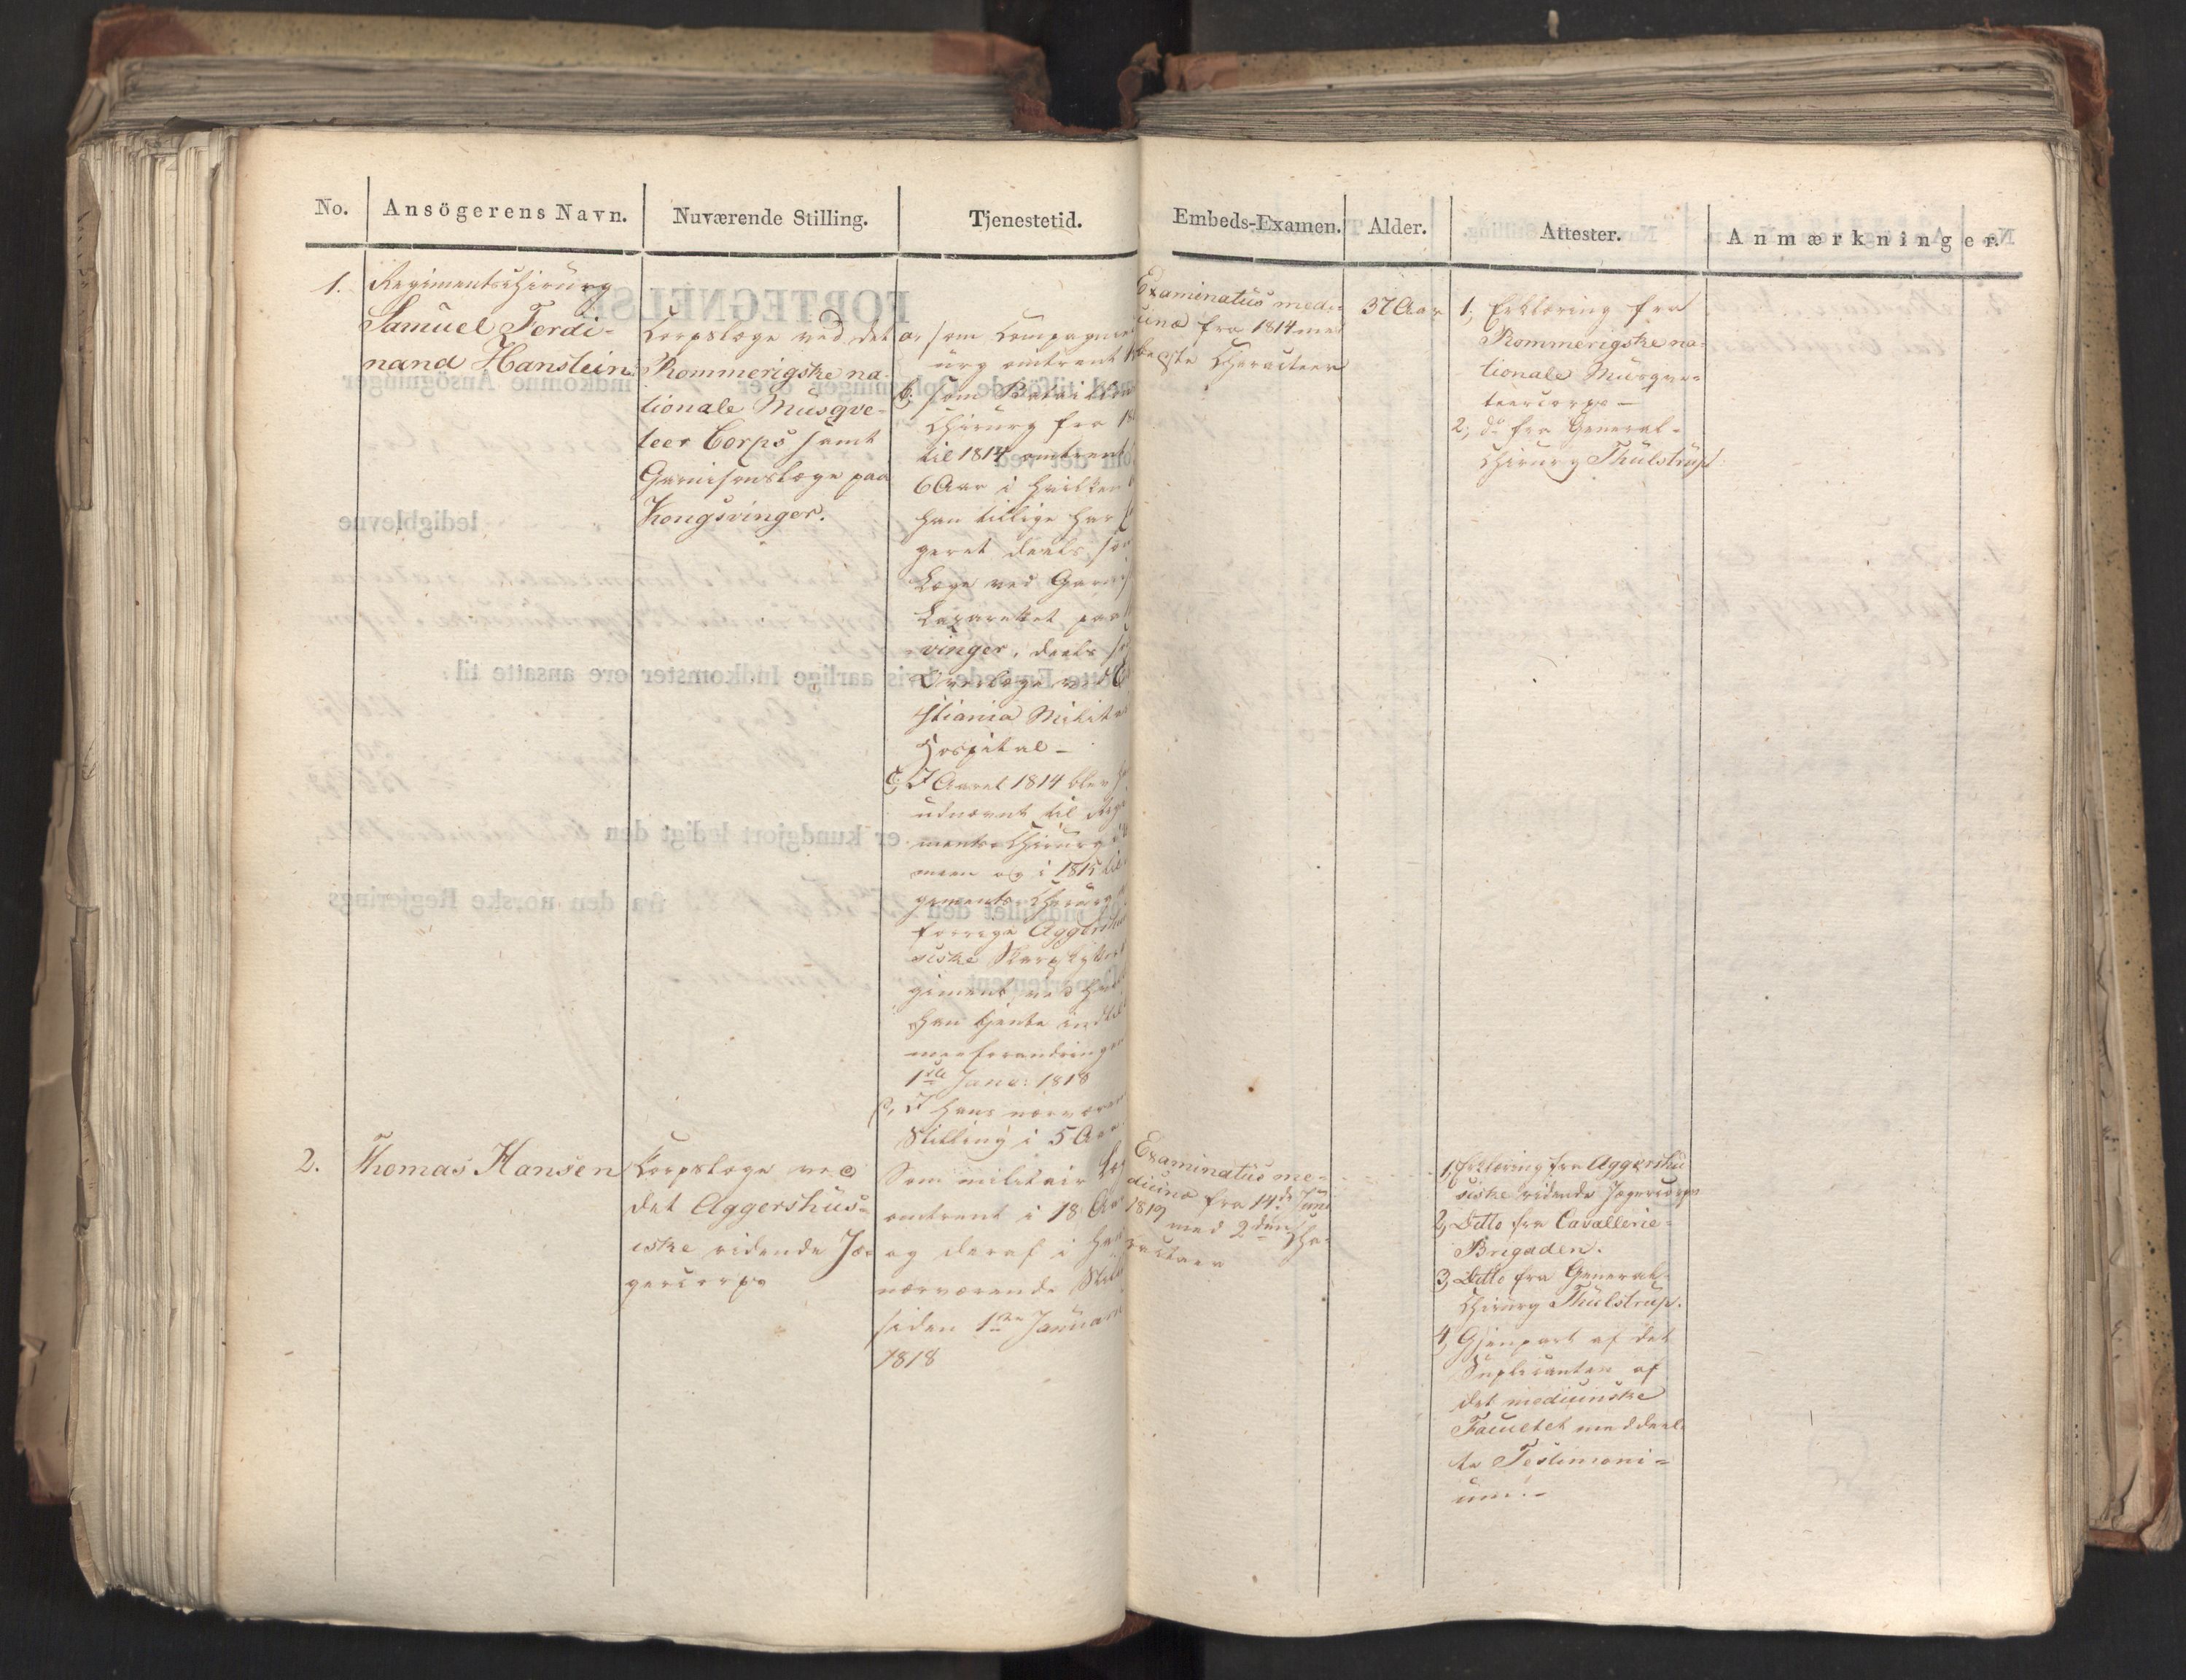 No.
Ansögerens Navn.
Nuværende Stilling.
Tjenestetid.
Embeds-Examen.
Alder.
Attester.
Anmærkninger.
1.
Regimentschirurg
Samuel Ferdi-
nand Hanstein
Corpslæge ved det
Rommerigske na-
tionale Musqve-
teer Corps samt
Garnisonslæge paa
Kongsvinger.
a, som Compagnie
urg omtrent
b, som Bataillon
Chirurg fra
til 1814 omtrent
6 Aar i hvilken
han tillige har
geret deels som
Læge ved Garnis
Lazarettet paa
vinger, deels
Overlæge ved
stiania Milita
Hospital -
c, I Aaret 1814 blev
udnævnt til Rege
ments Chirurg
meen og i 1815 til
gements-Chirurg
forrige Aggershu
siske Skarpskytte
giment, ved
han tjente indtil
meeforandringen
1ste Janr: 1818
d, I hans nærværen
Stilling i 5 Aar
Examinatus medi-
cinæ fra 1814 med
beste Characteer
37 Aar
1, Erklæring fra
Rommerigske na-
tionale Musqve-
teercorps -
2, do fra General-
chirurg Thulstrup
2.
Thomas Hansen
Corpslæge ved
det Aggershus-
iske ridende Jæ-
gercorps
Som militair Læg
omtrent i 18 Aar
og deraf i
nærværende Still
siden 1ste Januar
1818
Examinatus me-
dicinæ fra 14de Juni
1819 med 2den Cha-
racteer
1, Erklæring fra Aggershu
siske ridende Jægercorps
2, Ditto fra Cavallerie-
Brigaden.
3, Ditto fra General-
Chirurg Thulstrup.
4, Gjenpart af det
Suplicanten af
det medicinske
Facultet meddeel-
te Testimoni-
um. -